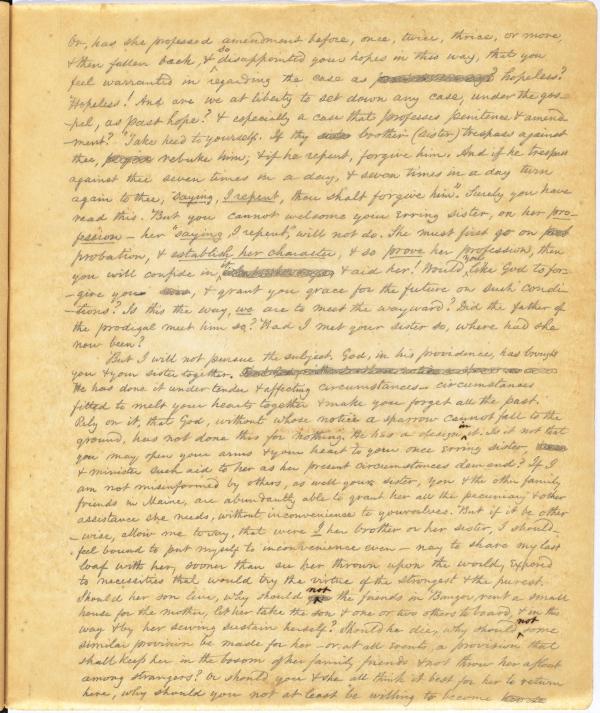 Or, has she professed amendment before, once, twice, thrice, or more,
& then fallen back, & so disappointed your hopes in this way, that you
feel warranted in regarding the case as hopeless?
"Hopeless! And are we at liberty to set down any case, under the gos-
-pel, as past hope? & especially a case that professes penitence & amend-
-ment? "Take heed to yourself. If thy brother (sister) trespass against
thee, rebuke him; & if he repent, forgive him. And if he trespass
against thee seven times in a day, & seven times in a day turn
again to thee, saying, I repent, thou shalt forgive him." Surely you have
read this. "But you cannot welcome your erring sister, on her pro-
fession – her "saying, I repent," will not do. She must first go on
probation, & establish her character, & so prove her profession, then
you will confide in, & aid her! Would you like God to for-
-give you & grant you grace for the future on such condi-
-tions? Is this the way, we are to meet the wayward? Did the father of
the prodigal meet him so? Had I met your sister so, where had she
now been?
But I will not pursue the subject. God, in his providence, has brought
you & your sister together.
He has done it under tender & affecting circumstances – circumstances
fitted to melt your hearts together & make you forget all the past.
Rely on it, that God, without whose notice a sparrow cannot fall to the
ground, has not done this for nothing. He has a design in it. Is it not that
you may open your arms & your heart to your once erring sister,
& minister such aid to her as her present circumstances demand? If I
am not misinformed by others, as well your sister, you & the other family
friends in Maine, are abundantly able to grant her all the pecuniary & other
assistance she needs, without inconvenience to yourselves. But if it be other
-wise, allow me to say, that were I her brother or her sister, I should
feel bound to put myself to inconvenience even – nay to share my last
loaf with her, sooner than see her thrown upon the world, exposed
to necessities that would try the virtue of the strongest & the purest.
Should her son live, why should not the friends in Bangor, rent a small
house for the mother, let her take the son & one or two others to board, & in this
way & by her sewing sustain herself? Should he die, why should not some
similar provision be made for her – or at all events, a provision that
shall keep her in the bosom of her family friends & not throw her afloat
among strangers? Or should you & she all think it best for her to return
here, why should you not at least be willing to become